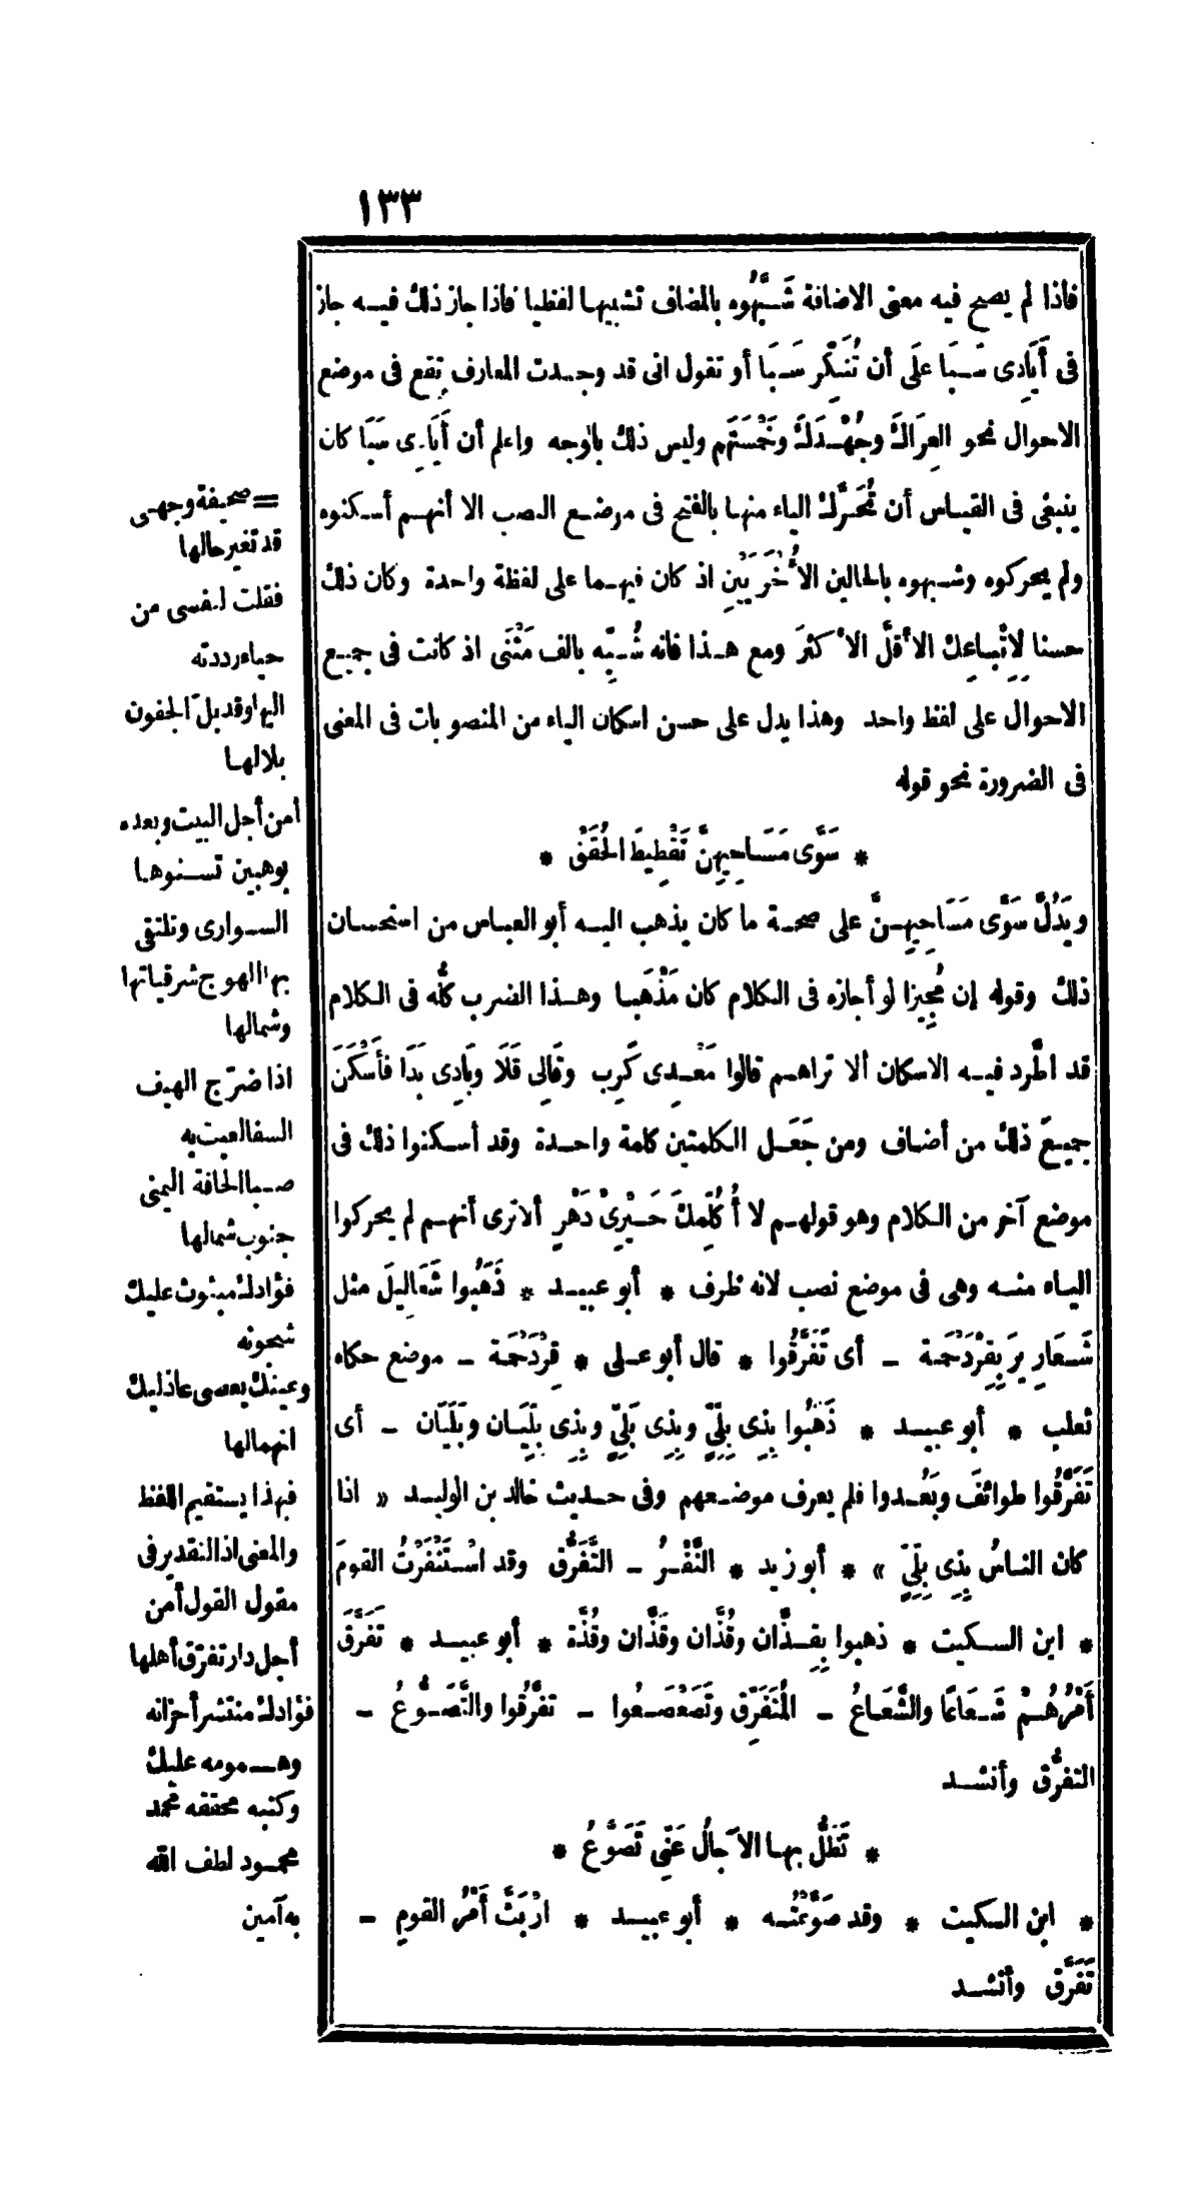 ١٣٣
فاذا لم يصح فيه معنى الاضافة شَبَّهُوه بالمضاف تشبيها لفظيا فاذا جاز ذلك فيه جاز
فى أَيَادِى سَبَا علَى أن تُنَكِّر سَبَا أو تقول انى قد وجدت المعارف تقع فى موضع
الاحوال نحو العِرَاكَ وجُهْدَكَ وخَمْسَتَهم وليس ذلك بالوجه واعلم أن أَيَادِى سَبَا كان
ينبغى فى القياس أن تُحَرَّك الياء منها بالفتح فى موضع النصب الا أنهم أسكنوه
ولم يحركوه وشبهوه بالحالين الأُخْرَيَيْنِ اذ كان فيهما على لفظة واحدة وكان ذلك
حسنا لِاتْباعِك الأقلَّ الأكثرَ ومع هذا فانه شُبِّه بالف مَثْنَى اذ كانت فى جميع
الاحوال على لفظ واحد وهذا يدل على حسن اسكان الياء من المنصوبات فى المعنى
فى الضرورة نحو قوله
* سَوَّى مَسَاحِيهِنَّ تَقْطِيطَ الحُقَقْ *
ويَدُلُّ سَوَّى مَسَاحِيهِنَّ على صحة ما كان يذهب اليه أبو العباس من استحسان
ذلك وقوله إن مُجِيزا لو أجازه فى الكلام كان مَذْهَبا وهذا الضرب كلُّه فى الكلام
قد اطَّرد فيه الاسكان ألا تراهم قالوا مَعْدِى كَرِب وقَالِى قَلَا وبَادِى بَدَا فأَسْكَنَ
جميعَ ذلك من أضاف ومن جَعَل الكلمتين كلمة واحدة وقد أسكنوا ذلك فى
موضع آخر من الكلام وهو قولهم لا أُكَلِّمكَ حَيْرِىْ دَهْرٍ ألا ترى أنهم لم يحركوا
الياء منه وهى فى موضع نصب لانه ظرف * أبو عبيد * ذَهَبُوا شَمَالِيلَ مثل
شَعَارِيرَ بِقِرْدَحْمَة - أى تَفَرَّقُوا * قال أبو على * قِرْدَحْمَة - موضع حكاه
ثعلب * أبو عبيد * ذَهَبُوا بِذِى بِلِّىٍّ وبِذِى بَلِّىٍّ وبِذِى بِلِّيَان وبَلَيَان - أى
تَفَرَّقُوا طوائفَ وبَعُدوا فلم يعرف موضعهم وفى حديث خالد بن الوليد « اذا
كان الناسُ بِذِى بِلِّىّ » * أبو زيد * النَّفْرُ - التَّفَرُّق وقد اسْتَنْفَرْتُ القومَ
* ابن السكيت * ذهبوا بِقِذَّان وقُذَّان وقَذَّان وقُذَّة * أبو عبيد * تَفَرَّقَ
أَمْرُهُمْ شَعَاعًا والشَّعَاعُ - المُتَفَرِّق وتَصَعْصَعُوا - تفَرَّقُوا والتَّصَوُّعُ -
التفرُّق وأنشد
* تَظَلُّ بها الآجالُ عَنِّى تَصَوَّعُ *
* ابن السكيت * وقد صَوَّعْتُه * أبو عبيد * ارْبَثَّ أَمْرُ القومِ -
تَفَرَّق وأنشد
= صحيفة وجهى
قد تغير حالها
فقلت لنفسى من
حياء رددته
اليها وقد بلّ الجفون
بلالها
أمن أجل البيت وبعده
بوهبين تسنوها
السوارى وتلتقى
بها الهوج شرقياتها
وشمالها
اذا ضرّج الهيف
السفا لعبت به
صبا الحافة اليمنى
جنوب شمالها
فؤادك مبثوث عليك
شجونه
وعينك يعصى عاذليك
انهمالها
فبهذا يستقيم اللفظ
والمعنى اذ التقدير فى
مقول القول أمن
أجل دار تفرّق أهلها
فؤادك منتشر أحزانه
وهمومه عليك
وكتبه محققه محمد
محمود لطف الله
به آمين